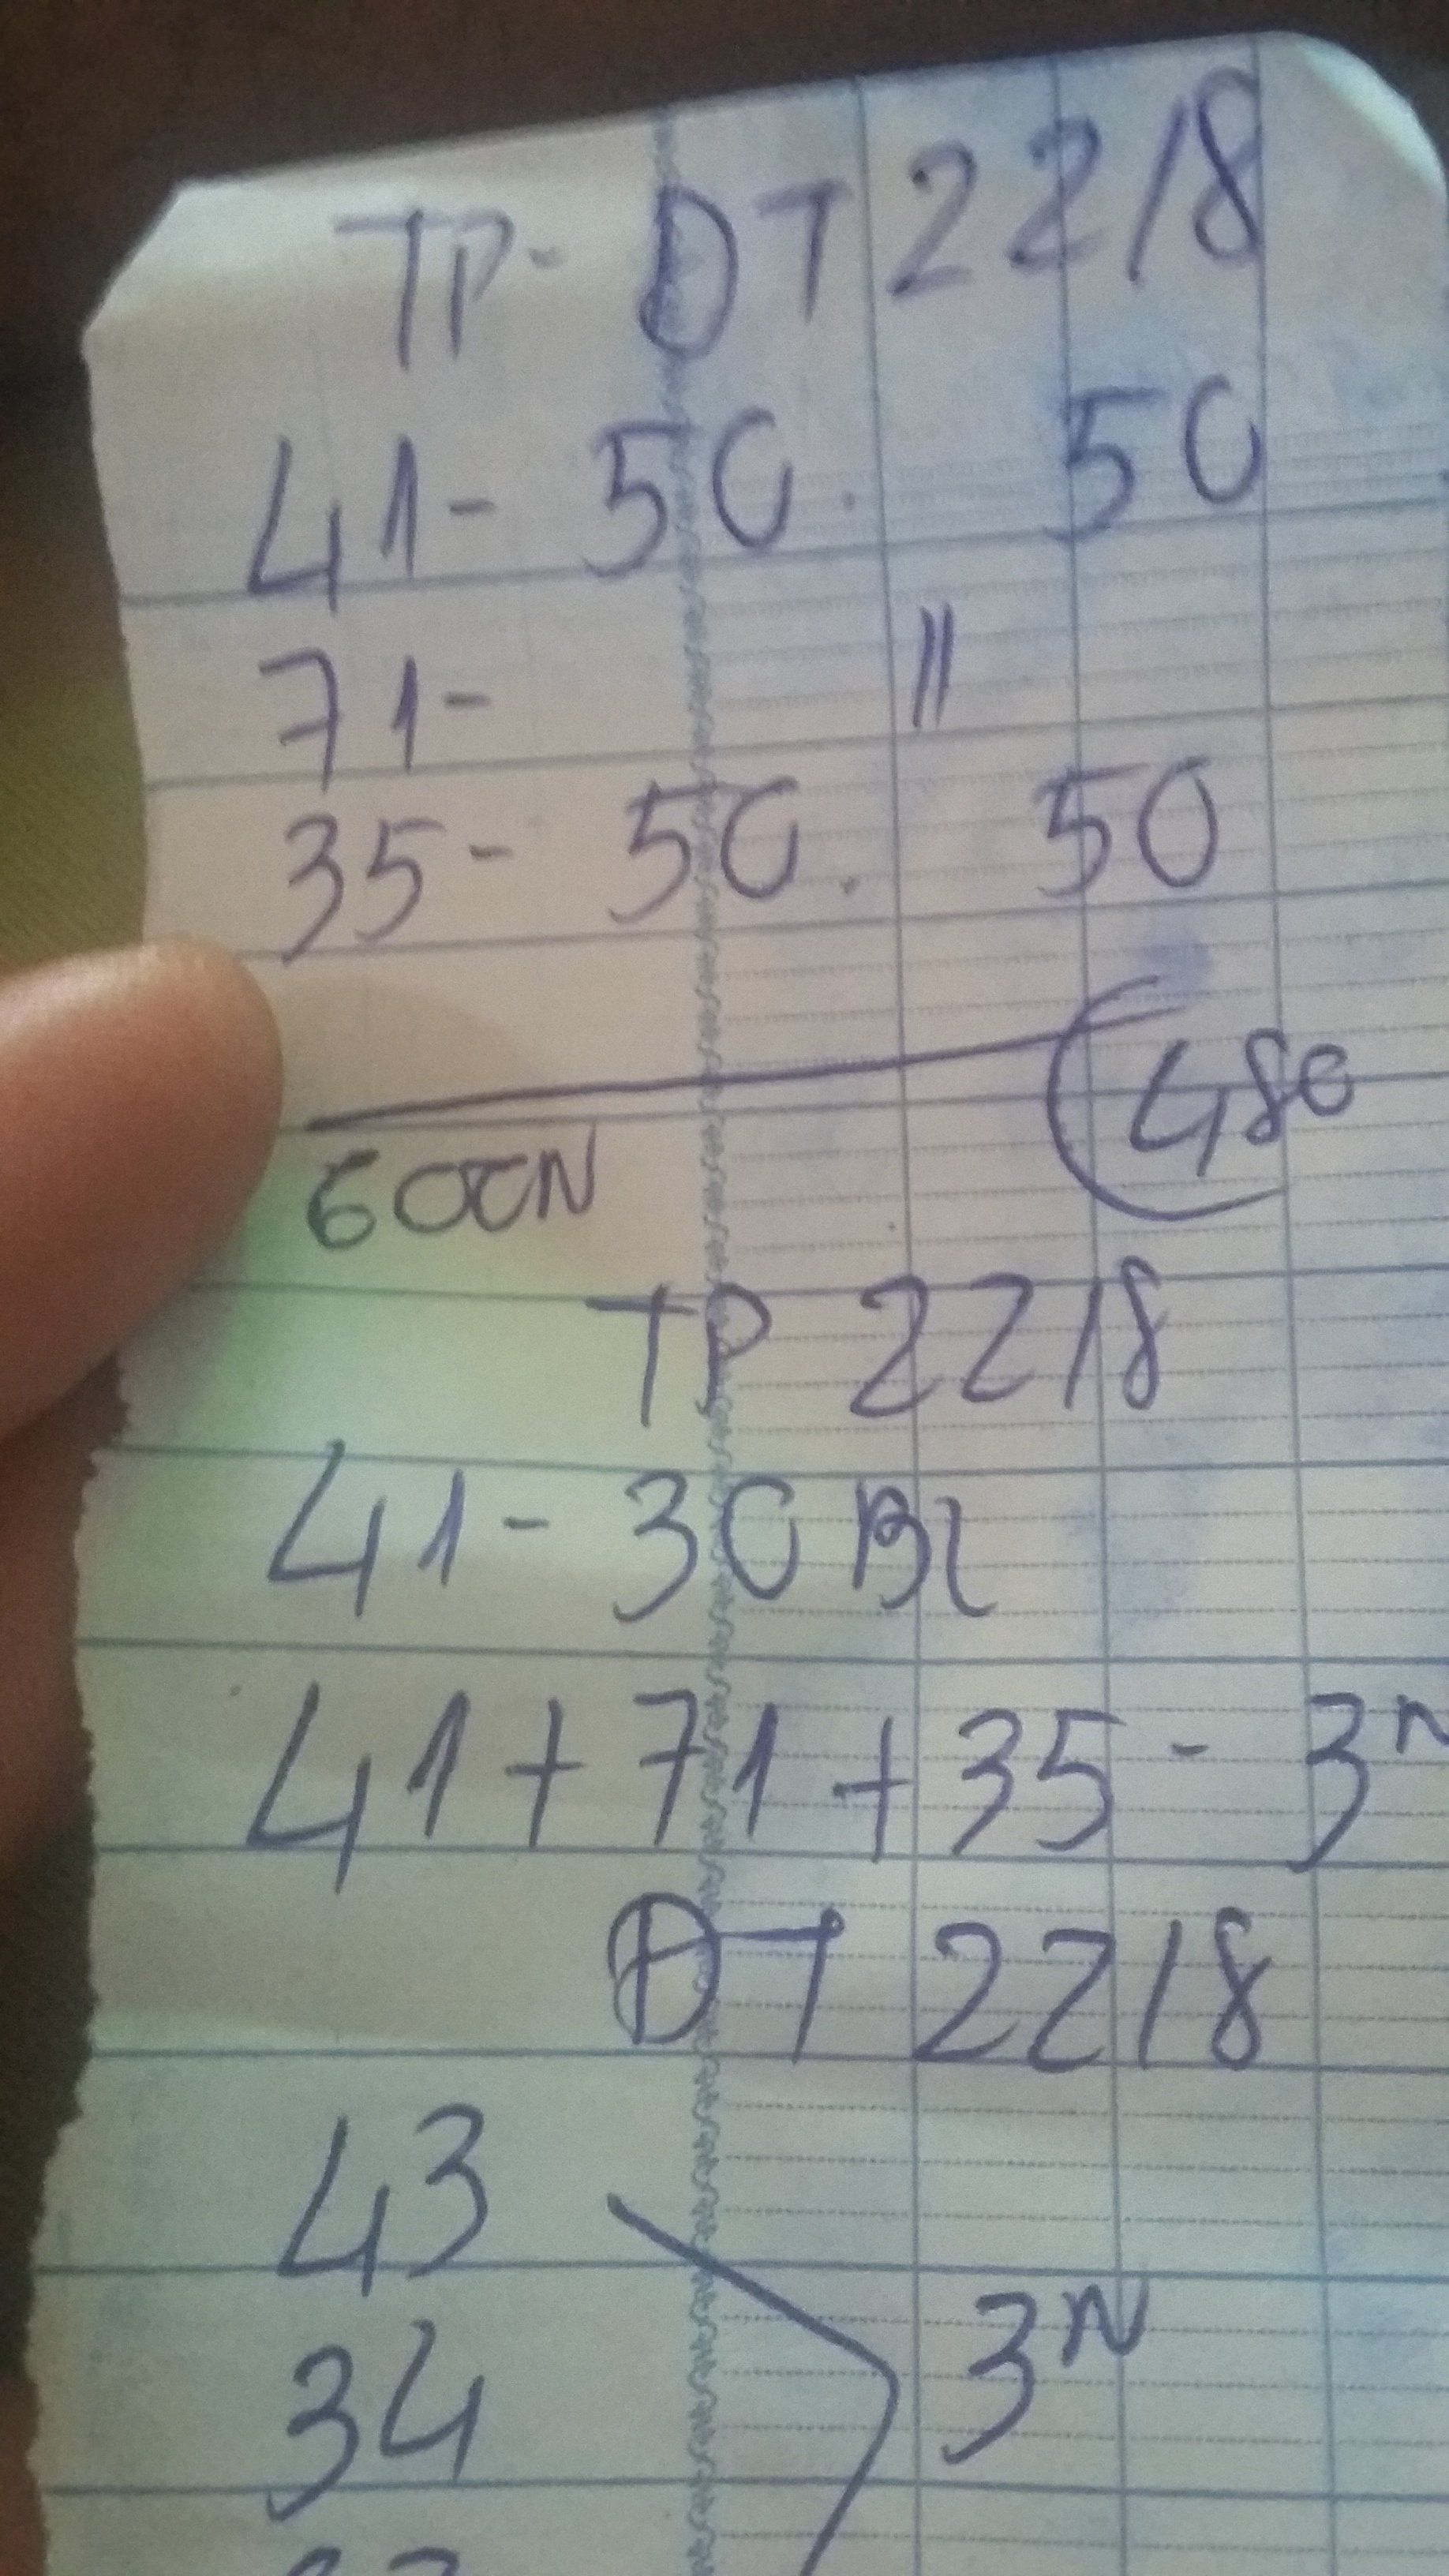 TP- DT 2218
41- 50. 50
71- "
35- 50. 50
480
TP 2218
41- 30 BL
41+71+35- 3N
ĐT 2218
43
34
3N